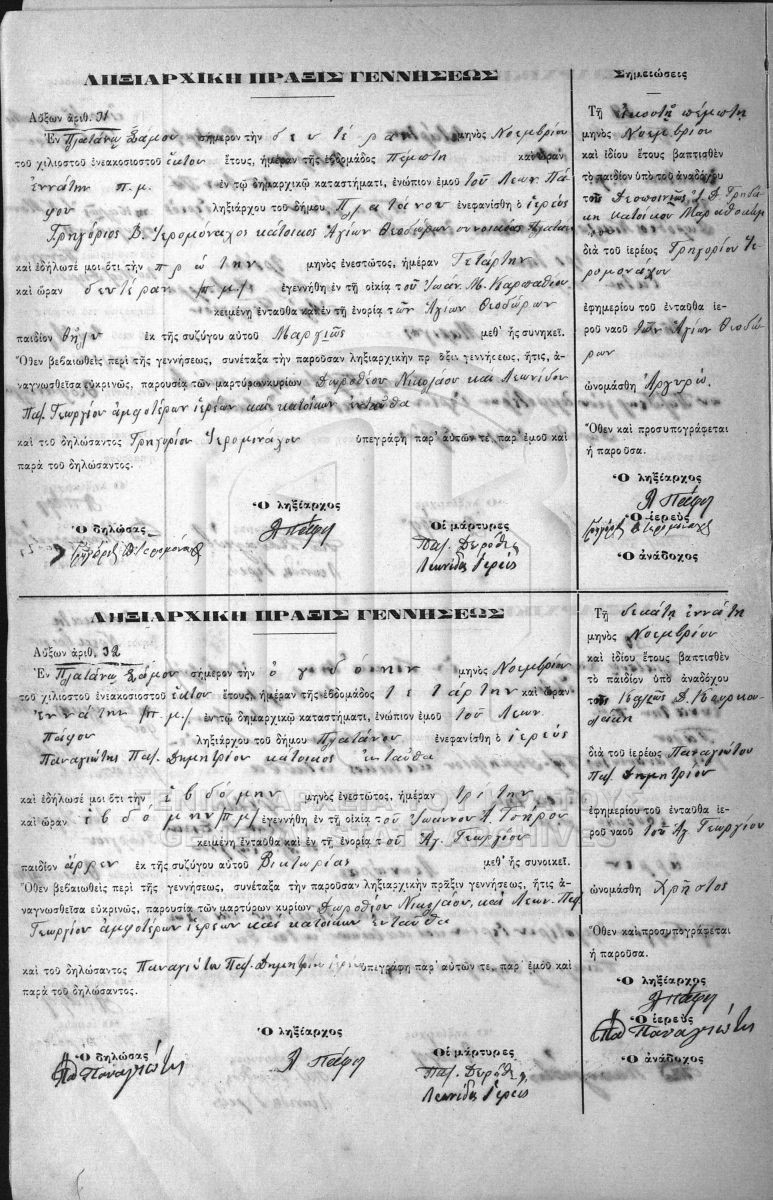 ΛΗΞΙΑΡΧΙΚΗ ΠΡΑΞΙΣ ΓΕΝΝΗΣΕΩΣ
Αὔξων ἀριθ. 31
Ἐν Πλατάνῳ Σάμου σήμερον τὴν δευτέραν μηνὸς Νοεμβρίου
τοῦ χιλιοστοῦ ἐνεακοσιοστοῦ ἕκτου ἔτους, ἡμέραν τῆς ἑβδομάδος Πέμπτη καὶ ὥραν
ἐννάτην π.μ. ἐν τῷ δημαρχικῷ καταστήματι, ἐνώπιον ἐμοῦ τοῦ Λεων. Πά-
φου ληξιάρχου τοῦ δήμου Πλατάνου ἐνεφανίσθη ὁ ἱερεὺς
Γρηγόριος Β. Ἱερομόναχος κάτοικος Ἁγίων Θεοδώρων συνοικίας Πλατάν
καὶ ἐδήλωσέ μοι ὅτι τὴν πρώτην μηνὸς ἐνεστῶτος, ἡμέραν Τετάρτην
καὶ ὥραν δευτέραν /π.μ./ ἐγεννήθη ἐν τῇ οἰκίᾳ τοῦ Ἰωάν. Μ. Καρπαθίου
κειμένῃ ἐνταῦθα καὶ ἐν τῇ ἐνορίᾳ τῶν Ἁγίων Θεοδώρων
παιδίον θῆλυ ἐκ τῆς συζύγου αὐτοῦ Μαργιῶς μεθ' ἧς συνοικεῖ.
Ὅθεν βεβαιωθεὶς περὶ τῆς γεννήσεως, συνέταξα τὴν παροῦσαν ληξιαρχικὴν πρᾶξιν γεννήσεως, ἥτις, ἀ-
ναγνωσθεῖσα εὐκρινῶς, παρουσίᾳ τῶν μαρτύρων κυρίων Δωροθέου Νικολάου καὶ Λεωνίδου
Παπ. Γεωργίου ἀμφοτέρων ἱερέων καὶ κατοίκων ἐνταῦθα
καὶ τοῦ δηλώσαντος Γρηγορίου Ἱερομονάχου ὑπεγράφη παρ' αὐτῶν τε, παρ' ἐμοῦ καὶ
παρὰ τοῦ δηλώσαντος.
Ὁ ληξίαρχος
Λ Πάφος
Ὁ δηλώσας
Γρηγόριος Β Ἱερομόναχος
Οἱ μάρτυρες
Παπ. Δωρόθεος
Λεωνίδας Ἱερεύς
Σημειώσεις
Τῇ εἰκοστῇ πέμπτῃ
μηνὸς Νοεμβρίου
καὶ ἰδίου ἔτους βαπτισθὲν
τὸ παιδίον ὑπὸ τοῦ ἀναδόχου
κατοίκου Μαραθοκάμ
διὰ τοῦ ἱερέως Γρηγορίου Ἱε-
ρομονάχου
ἐφημερίου τοῦ ἐνταῦθα ἱε-
ροῦ ναοῦ τῶν Ἁγίων Θεοδώ-
ρων
ὠνομάσθη Ἀργυρώ.
Ὅθεν καὶ προσυπογράφεται
ἡ παροῦσα.
Ὁ ληξίαρχος
Λ Πάφος
Ὁ ἱερεὺς
Γρηγόριος Β Ἱερομόναχος
Ὁ ἀνάδοχος
ΛΗΞΙΑΡΧΙΚΗ ΠΡΑΞΙΣ ΓΕΝΝΗΣΕΩΣ
Αὔξων ἀριθ. 32
Ἐν Πλατάνῳ Σάμου σήμερον τὴν ὀγδόην μηνὸς Νοεμβρίου
τοῦ χιλιοστοῦ ἐνεακοσιοστοῦ ἕκτου ἔτους, ἡμέραν τῆς ἑβδομάδος τετάρτην καὶ ὥραν
ἐννάτην /π.μ./ ἐν τῷ δημαρχικῷ καταστήματι, ἐνώπιον ἐμοῦ τοῦ Λεων.
Πάφου ληξιάρχου τοῦ δήμου Πλατάνου ἐνεφανίσθη ὁ ἱερεὺς
Παναγιώτης Παπ. Δημητρίου κάτοικος ἐνταῦθα
καὶ ἐδήλωσέ μοι ὅτι τὴν ἑβδόμην μηνὸς ἐνεστῶτος, ἡμέραν τρίτην
καὶ ὥραν ἑβδόμην /π.μ/ ἐγεννήθη ἐν τῇ οἰκίᾳ τοῦ Ἰωάννου Α. Τσήρου
κειμένῃ ἐνταῦθα καὶ ἐν τῇ ἐνορίᾳ τοῦ Ἁγ. Γεωργίου
παιδίον ἄρρεν ἐκ τῆς συζύγου αὐτοῦ Βικτωρίας μεθ' ἧς συνοικεῖ.
Ὅθεν βεβαιωθεὶς περὶ τῆς γεννήσεως, συνέταξα τὴν παροῦσαν ληξιαρχικὴν πρᾶξιν γεννήσεως, ἥτις ἀ-
ναγνωσθεῖσα εὐκρινῶς, παρουσίᾳ τῶν μαρτύρων κυρίων Δωροθέου Νικολάου, καὶ Λεων. Παπ.
Γεωργίου ἀμφοτέρων ἱερέων καὶ κατοίκων ἐνταῦθα
καὶ τοῦ δηλώσαντος Παναγιώτου Παπ. Δημητρίου ἱερέως ὑπεγράφη παρ' αὐτῶν τε, παρ' ἐμοῦ καὶ
παρὰ τοῦ δηλώσαντος.
Ὁ ληξίαρχος
Λ Πάφος
Ὁ δηλώσας
Παπα Παναγιώτης
Οἱ μάρτυρες
Παπ. Δωρόθεος
Λεωνίδας Ἱερεύς
Τῇ δεκάτῃ ἐννάτῃ
μηνὸς Νοεμβρίου
καὶ ἰδίου ἔτους βαπτισθὲν
τὸ παιδίον ὑπὸ ἀναδόχου
διὰ τοῦ ἱερέως Παναγιώτου
Παπ. Δημητρίου
ἐφημερίου τοῦ ἐνταῦθα ἱε-
ροῦ ναοῦ τοῦ Ἁγ Γεωργίου
ὠνομάσθη Χρῆστος
Ὅθεν καὶ προσυπογράφεται
ἡ παροῦσα.
Ὁ ληξίαρχος
Λ Πάφος
Ὁ ἱερεὺς
Παπα Παναγιώτης
Ὁ ἀνάδοχος